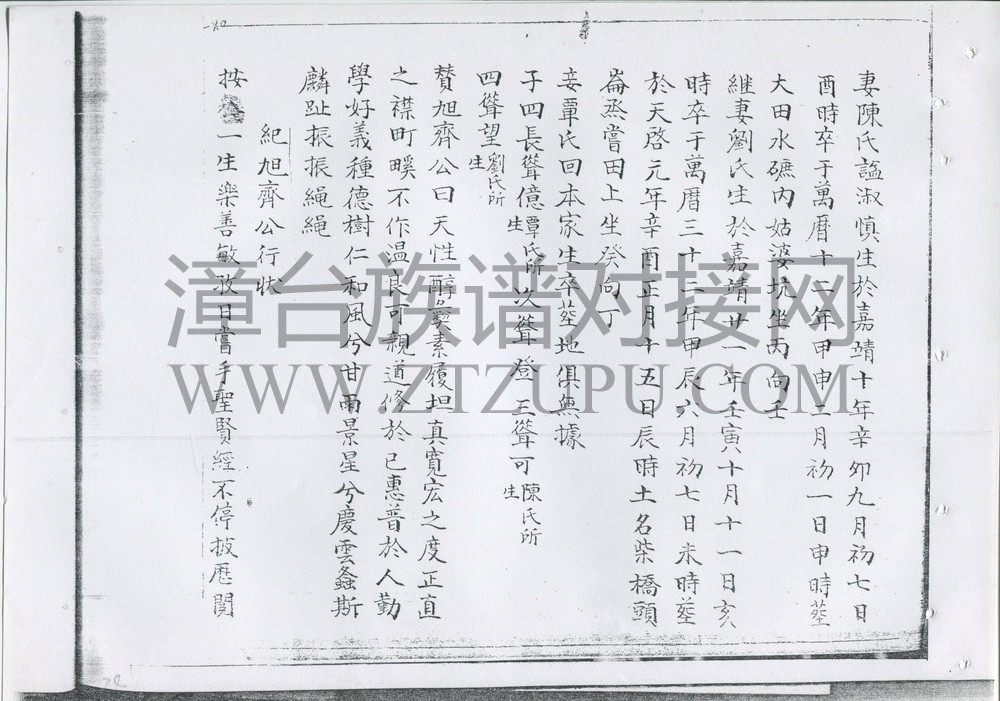 妻陳氏謚淑慎生於嘉靖十年辛卯九月初七日
酉時卒于萬曆十二年甲申二月初一日申時葬
大田水礁內姑婆坑坐丙向壬
継妻劉氏生於嘉靖廿一年壬寅十月十一日亥
時卒于萬曆三十二年甲辰六月初七日未時葬
於天啓元年辛酉正月十五日辰時土名柴橋頭
崙烝嘗田上坐癸向丁
妾覃氏回本家生卒葬地俱無據
子四長聳億覃氏所生次聳登三聳可陳氏所生
四聳望劉氏所生
賛旭齊公曰天性醇樸素履坦真寬宏之度正直
之襟町畦不作温良可親道修於己惠普於人勤
學好義種德樹仁和風兮甘雨景星兮慶雲螽斯
麟趾振振繩繩
紀旭齊公行狀
按一生樂善敏孜日嘗手聖賢經不停披歷閱
漳台族谱对接网
WWW.ZTZUPU.COM